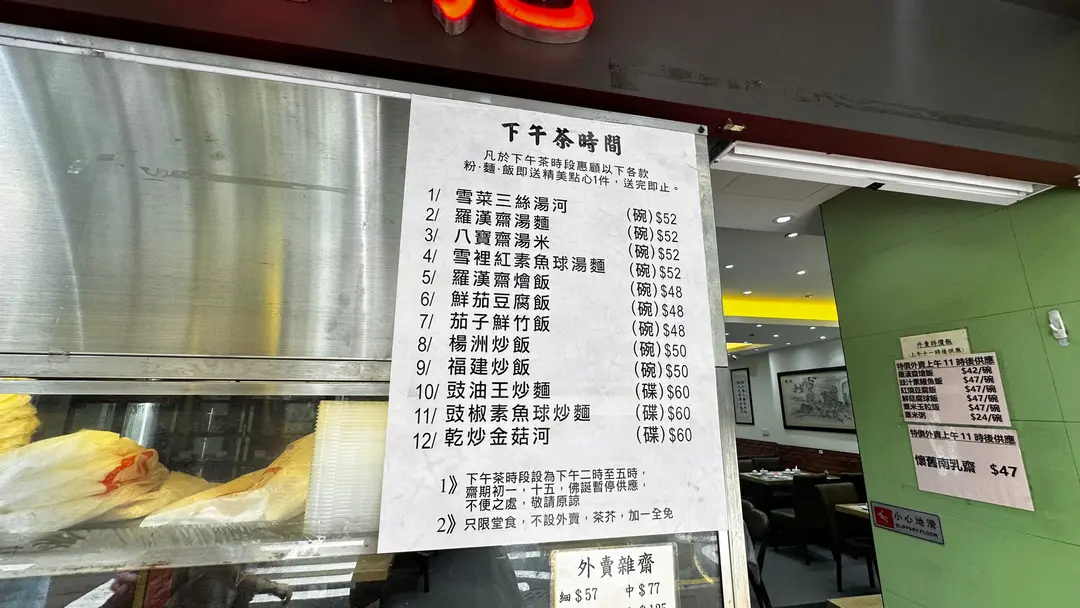 下午茶時間
凡於下午茶時段惠顧以下各款
粉·麵·飯即送精美點心1件，送完即止。
1/ 雪菜三絲湯河 (碗)$52
2/ 羅漢齋湯麵 (碗)$52
3/ 八寶齋湯米 (碗)$52
4/ 雪裡紅素魚球湯麵 (碗)$52
5/ 羅漢齋燴飯 (碗)$48
6/ 鮮茄豆腐飯 (碗)$48
7/ 茄子鮮竹飯 (碗)$48
8/ 楊洲炒飯 (碗)$50
9/ 福建炒飯 (碗)$50
10/ 豉油王炒麵 (碟)$60
11/ 豉椒素魚球炒麵 (碟)$60
12/ 乾炒金菇河 (碟)$60
1》下午茶時段設為下午二時至五時，
齋期初一，十五，佛誕暫停供應，
不便之處，敬請原諒
2》只限堂食，不設外賣，茶芥，加一全免
外賣雜齋
細$57 中$77
外賣特價飯
(上午十一時後供應)
特價外賣上午11時後供應
羅漢齋燴飯 $42/碗
豉汁素鰻魚飯 $47/碗
紅燒豆腐飯 $47/碗
鮮菇腐球飯 $47/碗
粟米玉粒飯 $47/碗
粟米粥 $24/碗
特價外賣上午11時後供應
懷舊南乳齋 $47
小心地滑
SLIPPERY FLOOR